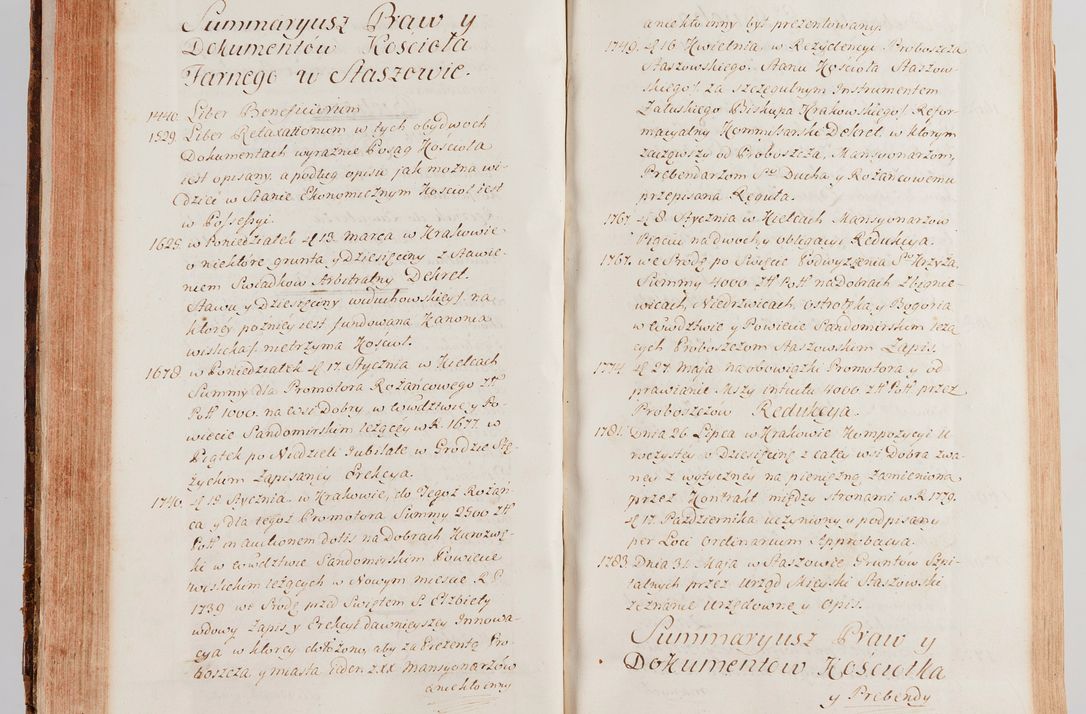 Summaryusz Praw y
Dokumentów Kościoła
Farnego w Staszowie.
1440. Liber Beneficiorum
1529. Liber Retaxationum w tych obydwoch
Dokumentach wyraźnie Posag Kościoła
iest opisany, a podług opisu jak można wi-
dzieć w Stanie Ekonomicznym Kościoł iest
w Possessyi.
1625. w Poniedziałek d. 13. marca w Krakowie
o niektóre grunta y Dziesięciny z Stawie-
niem Swiadków Arbitralny Dekret.
Stawu y Dziesięciny widuchowskiey/. na
ktorey pozniey iest fundowana Kanonia
wislicka/. nietrzyma Kościoł.
1678 w Poniedziałek d. 17. Stycznia w Kielcach
Summy dla Promotora Rożańcowego Złł
Poll 1000. na wsi Dobry, w Wwdztwie y Po-
wiecie Sandomirskim leżącey w R. 1677. w
Piątek po Niedzieli Jubilate w Grodzie
życkym zapisaney Erekcya.
1740. d. 19 Stycznia. w Krakowie, do Tegoż Rożań-
ca y dla tegoż Promotora Summy 2500 Złł
Poll in auctionem dotis na Dobrach Kurozwę-
ki w Wwdztwie Sandomirskim Powiecie
wislickim leżących w Nowym mieście R. P.
1739 we Srodę przed Swiętem S. Elżbiety
wdowy Zapis y Erekcyi dawnieyszey Innowa-
cya w ktorey dołożono, aby za Prezentą Pro-
boszcza, y miasta jeden z XX Mansyonarzów
a niekto inny
a niekto inny był prezentowany.
1749. d. 16 Kwietnia w Rezydencyi Proboszcza
Staszowskiego. Stanu Kościoła Staszow-
skiego/. za szczegulnym Instrumentem
Załuskiego Biskupa Krakowskiego/. Refor-
macyalny Kommisarski Dekret, w ktorym
zacząwszy od Proboszcza, Mansyonarzom,
Prebendarzom Sgo Ducha y Rożańcowemu
przepisana Reguła.
1767. d. 8 Stycznia w Kielcach Mansyonarzow
Pięciu na dwoch, y obligacyi Redukcya.
1767. we Srodę po Swięcie Podwyższenia Sgo Krzyża,
Summy 4000 Złł Poll na Dobrach Zbignie-
wicach, Niedrzwicach, Ostrołęka y Bogoria
w Wwdztwie y Powiecie Sandomirskim leżą-
cych Proboszczom Staszowskim Zapis.
1774 d. 27. maja na obowiązki Promotora y od
prawianie Mszy intuitu 4000 Złł Poll przez
Proboszczow Redukcya.
1781. Dnia 26 Lipca w Krakowie Kompozycyi U
roczystey w Dziesięcinę z całey wsi Dobra zwa-
ney z wytyczney na pienięzną zamieniona
przez Kontrakt między stronami w R. 1779.
d. 17. Października uczyniony y podpisany
per Loci Ordinarium Approbacya.
1783 Dnia 31. Maja w Staszowie Gruntow Szpi-
talnych przez Urząd Mieyski Staszowski
zeznanie Urzędowne y Opis.
Summaryusz Praw y
Dokumentow Kościołka
y Prebendy